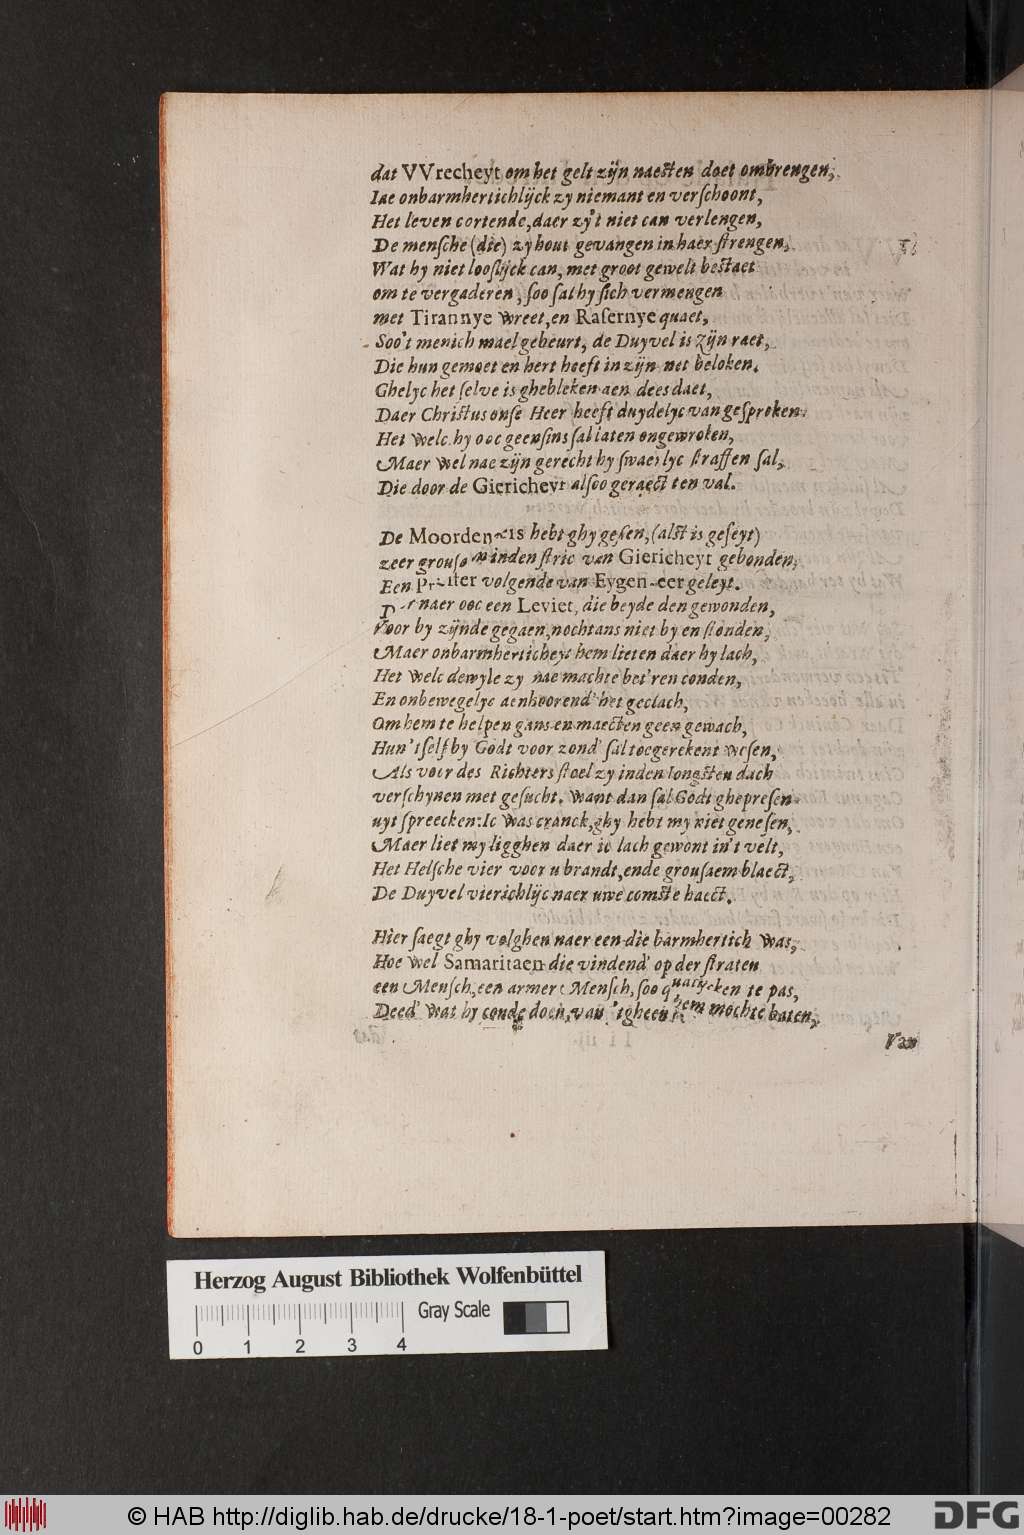 dat VVrecheyt om het gelt zijn naesten doet ombrengen,
Iae onbarmhertichlijck zy niemant en verschoont,
Het leven cortende, daer zy't niet can verlengen,
De mensche (die) zy hout gevangen in haer strengen,
Wat hy niet looslijck can, met groot gewelt bestaet
om te vergaderen, soo sal hy sich vermengen
met Tirannye wreet, en Rasernye quaet,
Soo't menich mael gebeurt, de Duyvel is zijn raet,
Die hun gemoet en hert heeft in zijn net beloken.
Ghelyc het selve is ghebleken aen dees daet,
Daer Christus onse Heer heeft duydelyc van gesproken.
Het welc hy ooc geensins sal laten ongewroken,
Maer wel nae zijn gerecht hy swaerlyc straffen sal,
Die door de Giericheyt alsoo geraect ten val.
De hebt ghy gesen, (alst is geseyt)
zeer in den stric van Giericheyt gebonden,
Een volgende van geleyt.
naer ooc een Leviet, die beyde den gewonden,
Voor by zijnde gegaen, nochtans niet by en stonden,
Maer onbarmherticheyt hem lieten daer hy lach,
Het welc dewyle zy nae machte bet'ren conden,
En onbewegelyc aenhoorend' het geclach,
Om hem te helpen gans en maecten geen gewach,
Hun 'tself by Godt voor zond' sal toegerekent wesen,
Als voor des Richters stoel zy in den Iongsten dach
verschynen met gesucht. Want dan sal Godt ghepresen
uyt spreecken: Ic was cranck, ghy hebt my niet genesen,
Maer liet my ligghen daer ic lach gewont in't velt,
Het Helsche vier voor u brandt, ende grousaem blaect,
De Duyvel vierichlijc naer uwe comste haect.
Hier saegt ghy volghen naer een die barmhertich was,
Hoe wel Samaritaen die vindend' op der straten
een Mensch, een armer Mensch, soo te pas,
Deed' wat hy conde doen, van 'tgheen hem mochte baten,
Van
Herzog August Bibliothek Wolfenbüttel
Gray Scale
0 1 2 3 4
© HAB http://diglib.hab.de/drucke/18-1-poet/start.htm?image=00282
DFG